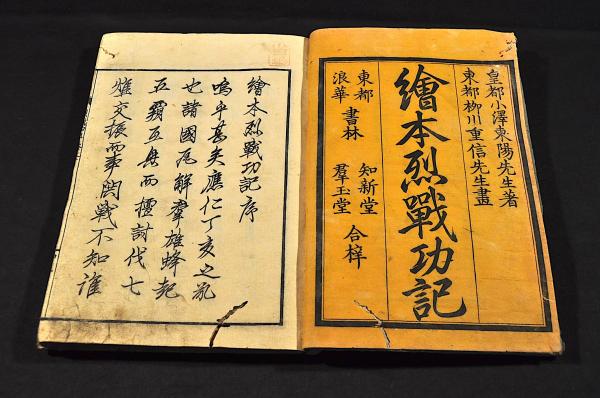 皇都小澤東陽先生著
東都柳川重信先生畫
繪本烈戰功記
東都
浪華
書林
知新堂
羣玉堂
合梓
繪本烈戰功記序
嗚乎甚矣應仁丁亥之亂
也諸國瓦解羣雄蜂起
五覇互興而擅討伐七
雄交振而事鬪戰不知誰